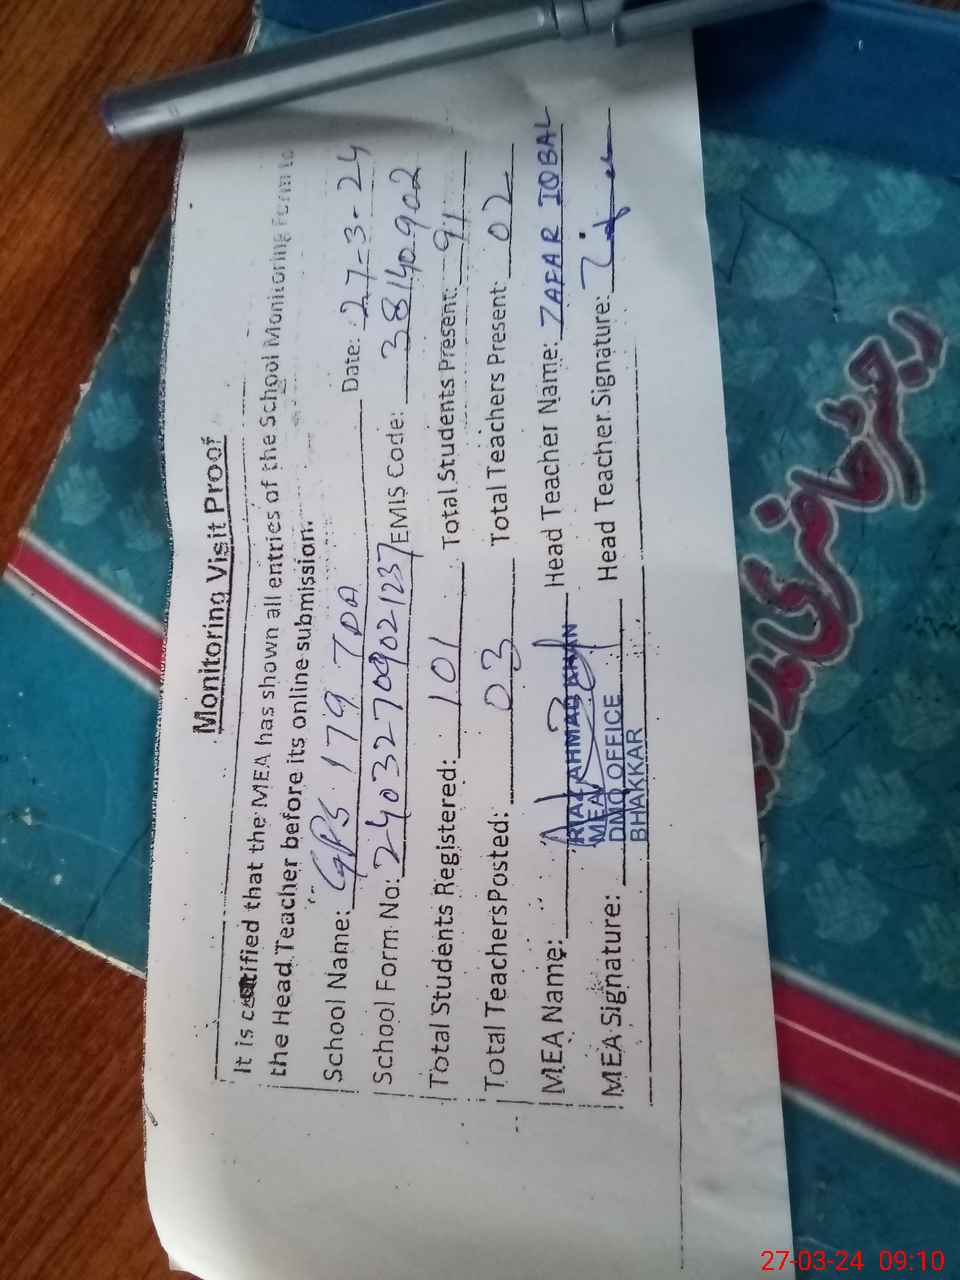 Monitoring Visit Proof
It is certified that the MEA has shown all entries of the School Monitoring Form to
the Head Teacher before its online submission.
School Name: GPS 179 TDA Date: 27-3-24
School Form No: 24032709021237 EMIS Code: 38140902
Total Students Registered: 101 Total Students Present: 91
Total Teachers Posted: 03 Total Teachers Present: 02
MEA Name: RIAZ AHMAD Head Teacher Name: ZAFAR IQBAL
MEA Signature: Head Teacher Signature:
MEA
DMO OFFICE
BHAKKAR
رجسٹر حاضری
27-03-24 09:10